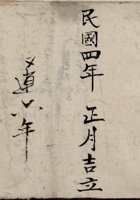 民國四年 正月吉立
道八年